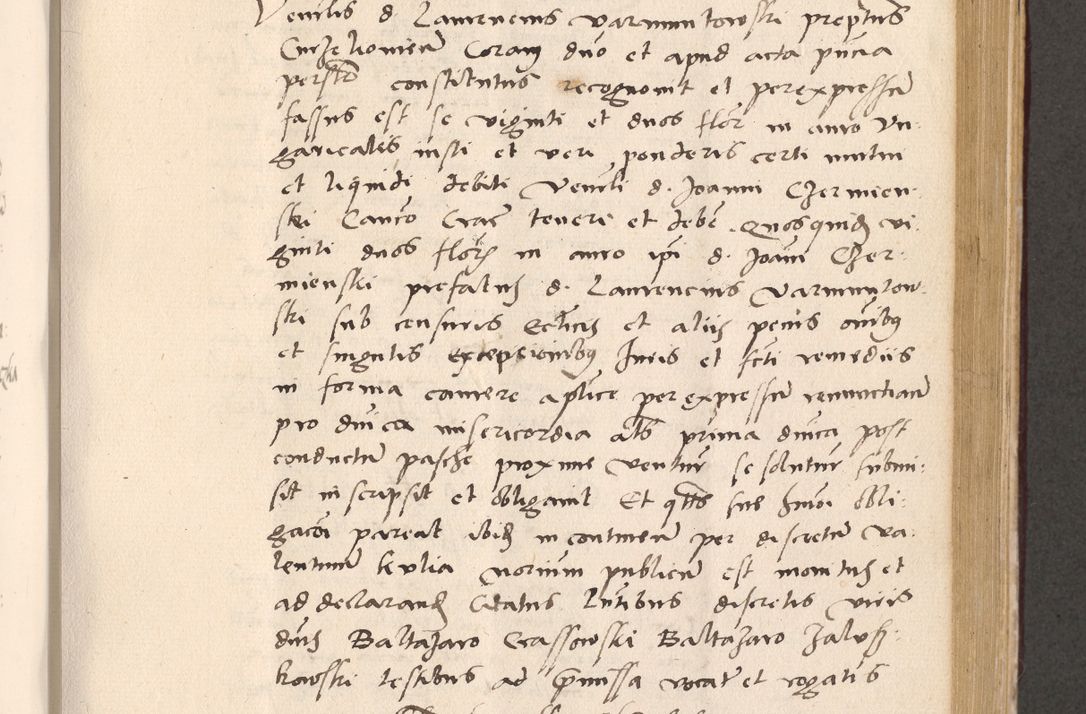 Venlis d Laurencius Varmuntowski preptus
Curzeloviens Coram dno et apud acta pncia
perstr constitutus recognovit et per expressum
fassus est se viginti et duos flor in auro Vn-
garicales iusti et veri ponderis certi mutui
et liquidi debiti Venrli d. Joanni Czermien-
ski Canco Crac tenere et debe. Quosquid vi-
ginti duos flor in auro ipi d. Joani Czer-
mienski prefatus d. Laurencius Varmuntow-
ski sub censuris Ecclicis et aliis penis oribus
et singulis exceptionibus Juris et fcti remediis
in forma camere aplice per expressum renunctians
pro dnica misericordia als prima dnica post
conductum pasche proxime ventur se soluturum submi-
sit inscripsit et obligavit Et qtus sue hmoi obli-
gacoi pareat ibid incontinen per discretum Va-
lentinum Kulia norium publicum est monitus et
ad declarand Citatus Pntibus discretis viris
dnis Baltazaro Crassowski Baltazaro Zalus-
kowski testibus ad premissa vocat et rogatis